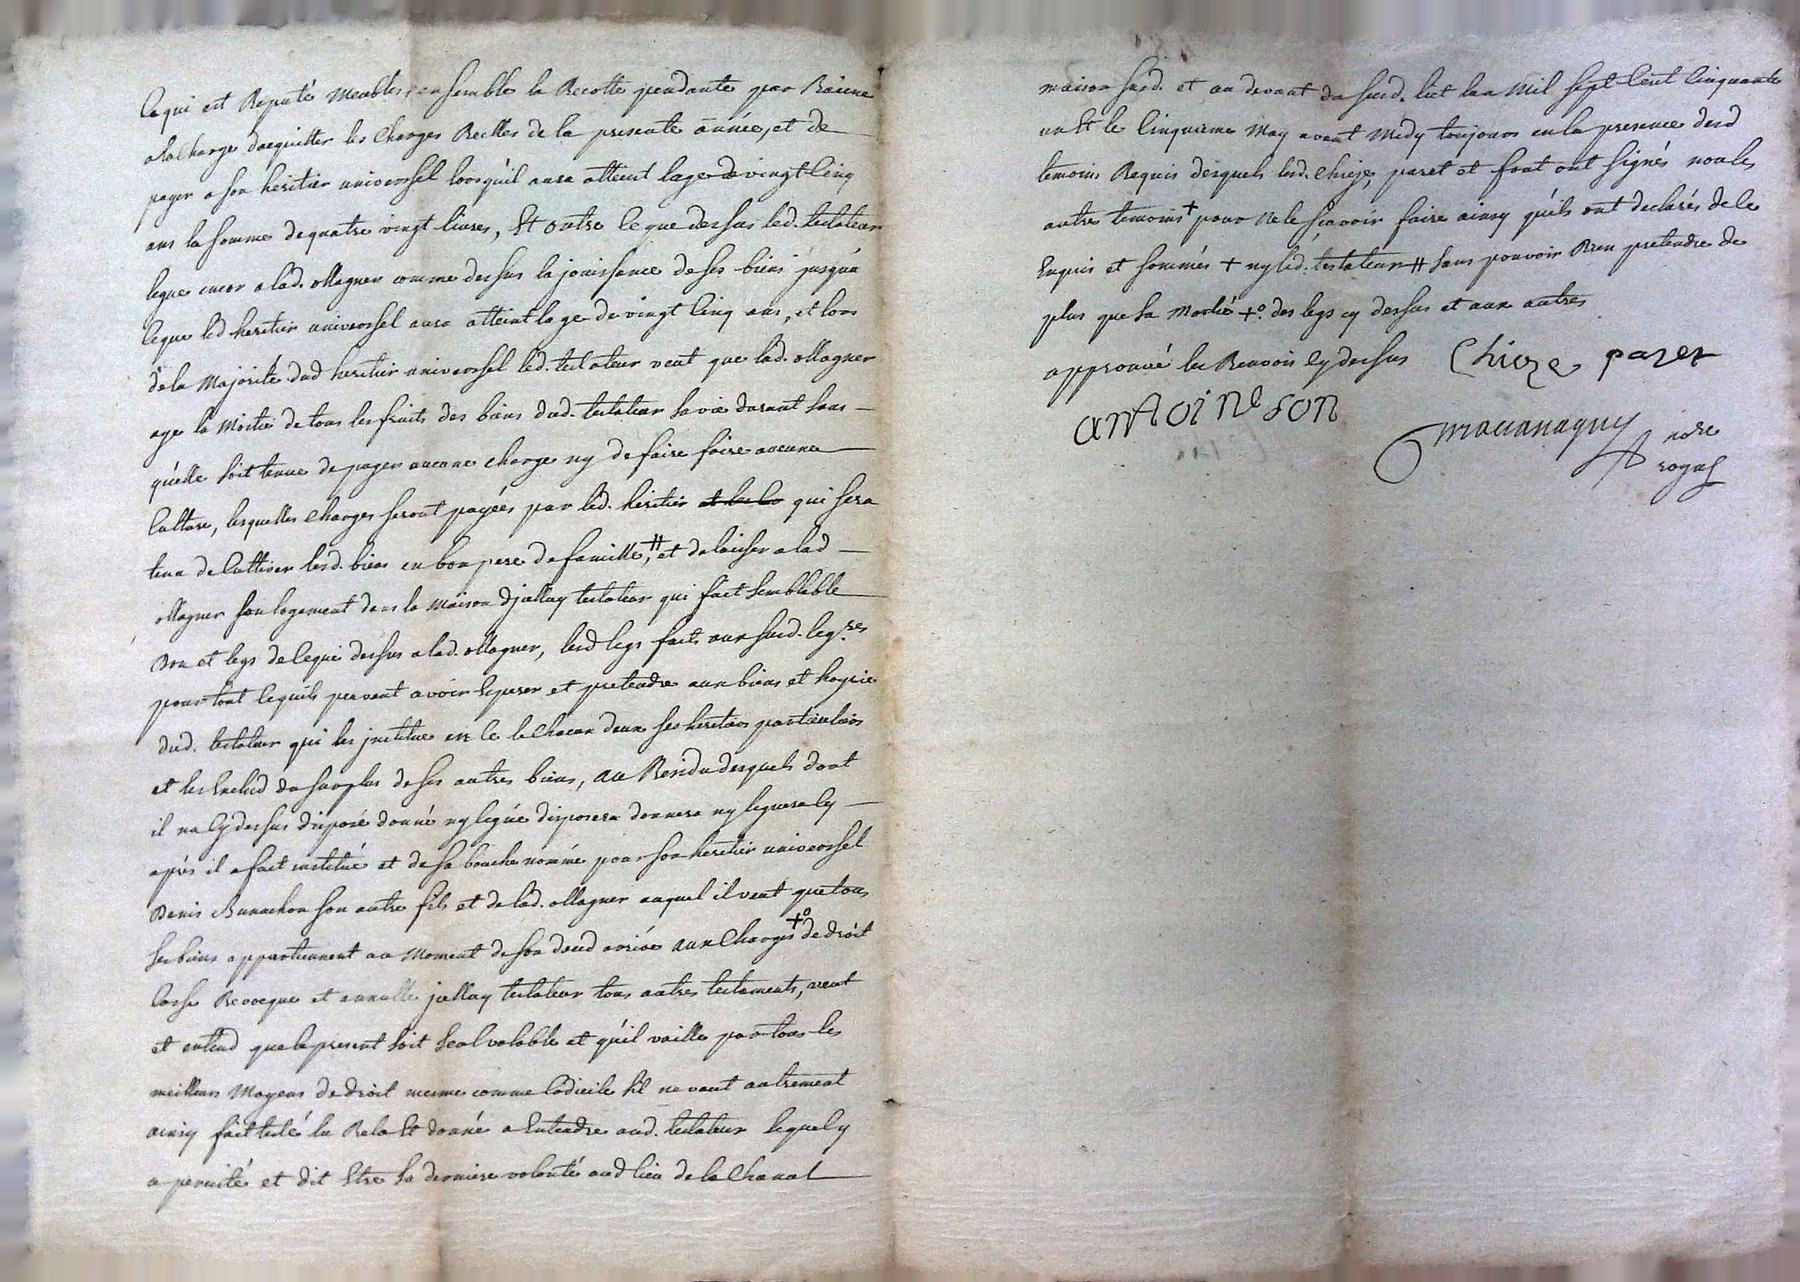 ce qui est Reputé Meubles, ensemble la Recolte pendante par Racine
a la Charge dacquitter les Charges Reelles de la presente année, et de
payer a son heritier universel lorsquil aura atteint lage de vingt cinq
ans la somme de quatre vingt livres, Et outre ce que dessus led. testateur
legue encor a lad. Magner comme dessus la jouissance de ses biens jusqu'a
ce que led heritier universel aura atteint lage de vingt cinq ans, et lors
de la Majorité dud heritier universel led. testateur veut que lad. Magner
aye la Moitié de tous les fruits des biens dud. testateur sa vie durant sans
qu'elle soit tenue de payer aucune charge ny de faire faire aucune
Culture, lesquelles charges seront payées par led. heritier qui sera
tenu de Cultiver lesd. biens en bon pere de famille,⧺ et de laisser a lad
Magner son logement dans la Maison d'jcelluy testateur qui fait semblable
Don et legs de ce que dessus a lad. Magner, lesd legs faits aux susd. leg.res
pour tout ce quils peuvent avoir Esperer et pretendre aux biens et hoyrie
dud. testateur qui les jnstitue en ce le Chacun deux ses heritiers particuliers
et les Exclud du surplus de ses autres biens, au Residu desquels dont
il na Cy dessus disposé donné ny legué disposera donnera ny leguera Cy
aprés il a fait institué et de sa bouche nommé pour son heritier universel
Denis Bunachon son autre fils et de lad. Magner auquel il veut que tous
ses biens appartiennent au Moment de son deced arrivé aux Charges +o de droit
Casse Revocque et annulle jcelluy testateur tous autres testaments, veut
et entend que le present soit seul valable et qu'il vaille par tous les
meilleurs Moyens de droit mesme comme Codicile s'il ne vaut autrement
ainsy fait testé lu Relu Et donné a Entendre aud. testateur lequel y
a persisté et dit Etre sa derniere volonté aud lieu de la Chanal
maison susd. et au devant du susd. lict lan Mil sept Cent Cinquante
un Et le Cinquieme May avant Midy toujours en la presence desd
temoins Requis desquels lesd. Chieze, paret et font ont signés non les
autre temoins + pour ne le sçavoir faire ainsy qu'ils ont declarés de ce
Enquis et sommés + ny led. testateur ⧺ sans pouvoir Rien pretendre de
plus que sa Moitié +o. des legs cy dessus et aux autres
approuvé les Renvois Cy dessus Chieze parer
antoine son